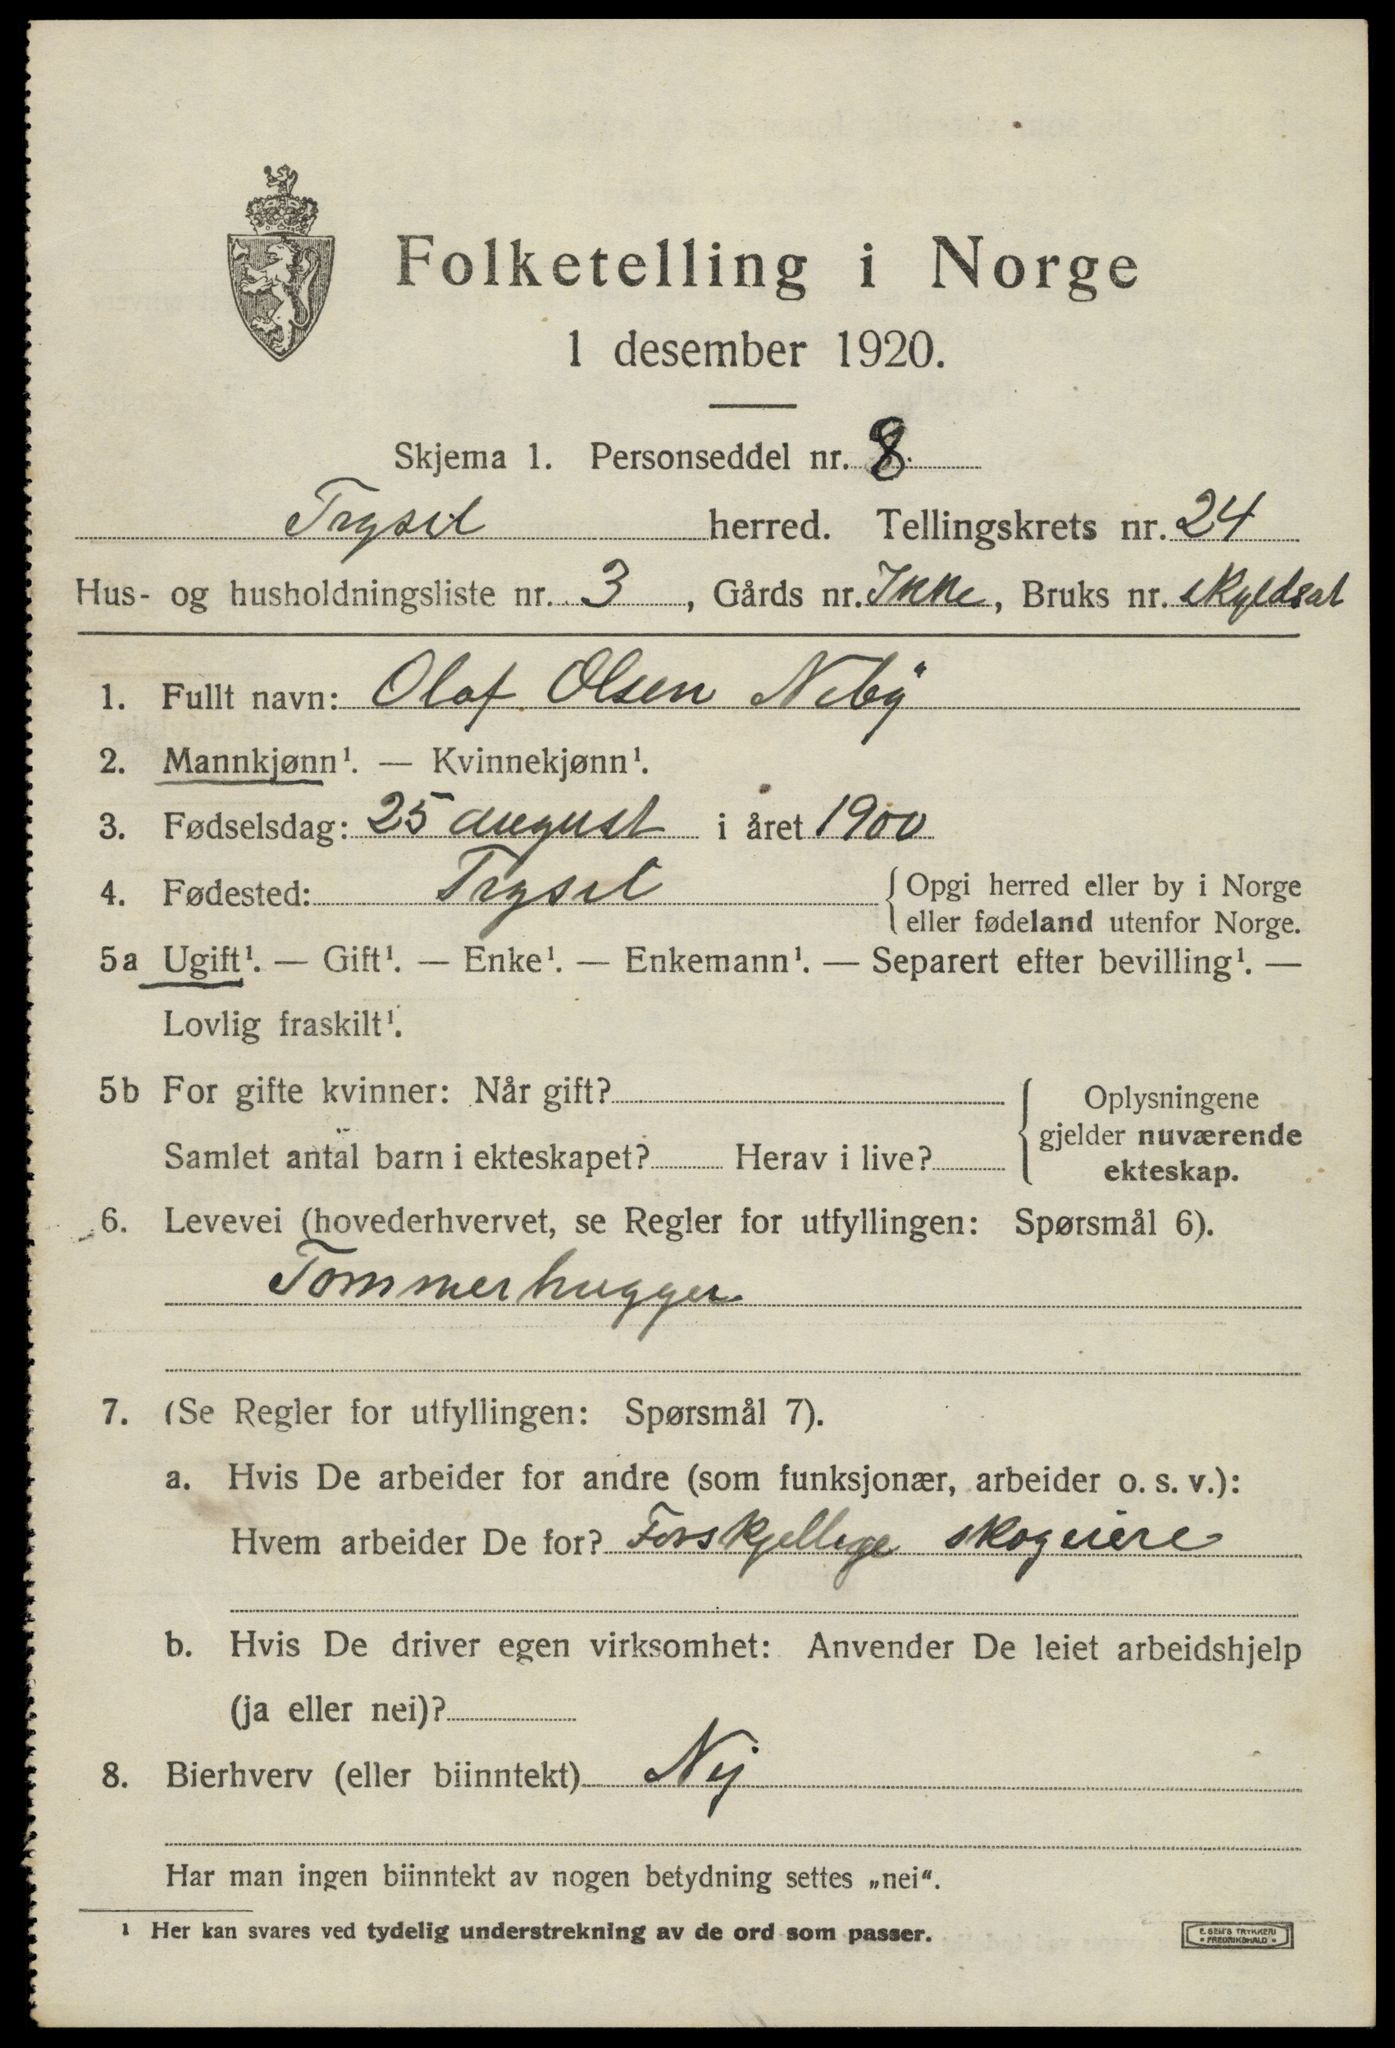 Folketelling i Norge
1 desember 1920.
Skjema 1. Personseddel nr. 8
Trysil herred. Tellingskrets nr. 24
Hus- og husholdningsliste nr. 3, Gårds nr. Ikke, Bruks nr. skyldsat
1. Fullt navn: Olaf Olsen Neby
2. Mannkjønn¹. — Kvinnekjønn¹.
3. Fødselsdag: 25 august i året 1900
4. Fødested: Trysil { Opgi herred eller by i Norge
eller fødeland utenfor Norge.
5a Ugift¹. — Gift¹. — Enke¹. — Enkemann¹. — Separert efter bevilling¹. —
Lovlig fraskilt¹.
5b For gifte kvinner: Når gift? { Oplysningene
gjelder nuværende
Samlet antal barn i ekteskapet? Herav i live? ekteskap.
6. Levevei (hovederhvervet, se Regler for utfyllingen: Spørsmål 6).
Tommerhugger
7. (Se Regler for utfyllingen: Spørsmål 7).
a. Hvis De arbeider for andre (som funksjonær, arbeider o. s. v.):
Hvem arbeider De for? Forskjellige skogeiere
b. Hvis De driver egen virksomhet: Anvender De leiet arbeidshjelp
(ja eller nei)?
8. Bierhverv (eller biinntekt) Nij
Har man ingen biinntekt av nogen betydning settes „nei“.
¹ Her kan svares ved tydelig understrekning av de ord som passer.
E. SEM'S TRYKKERI
FREDRIKSHALD